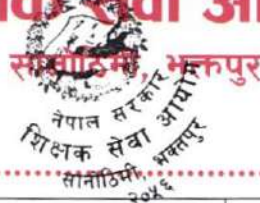 सेवा
सानोठिमी, भक्तपुर
नेपाल सरकार
शिक्षक सेवा आयोग
सानोठिमी, भक्तपुर
२०५६